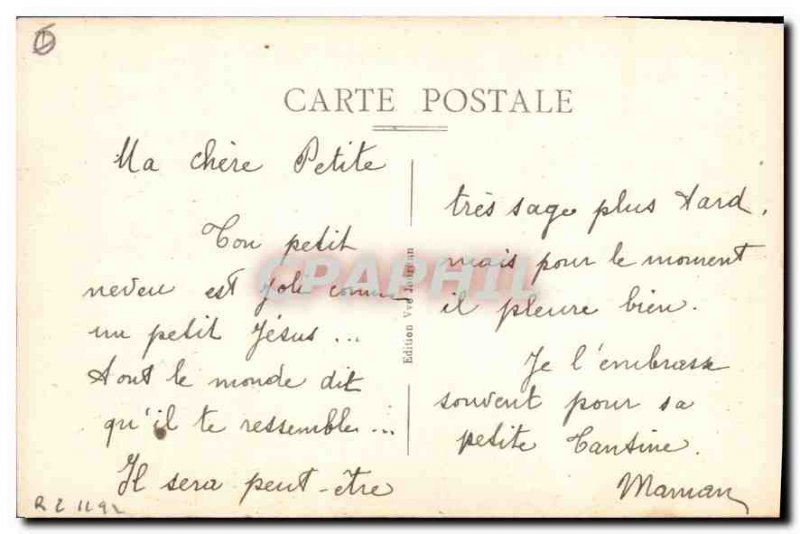 CARTE POSTALE
Ma chère Petite
Ton petit
neveu est joli comme
un petit Jésus...
tout le monde dit
qu'il te ressemble...
Il sera peut-être
très sage plus tard,
mais pour le moment
il pleure bien.
Je l'embrasse
souvent pour sa
petite Tantine.
Maman
Edition Vve
CPAPHIL